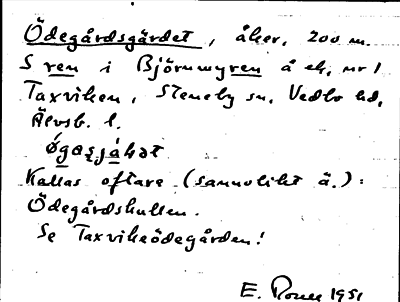 Ödegårdsgärdet, åker, 200 m.
S ren i Björnmyren å ek. nr 1
Taxviken, Steneby sn, Vedbo hd,
Älvsb. l.
Kallas oftare (sannolikt ä.):
Ödegårdskullen.
Se Taxviksödegården!
E. 1951